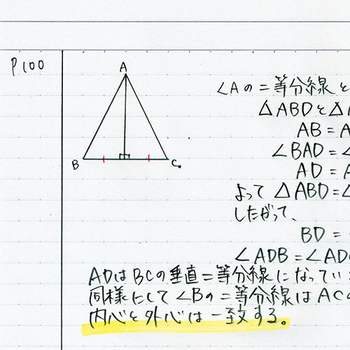 P100
A
B
C
∠Aの二等分線と
△ABDと△
AB=A
∠BAD=∠
AD=A
よって△ABD=
したがって、
BD=
∠ADB=∠AD
ADはBCの垂直二等分線になってい
同様にして∠Bの二等分線はACの
内心と外心は一致する。